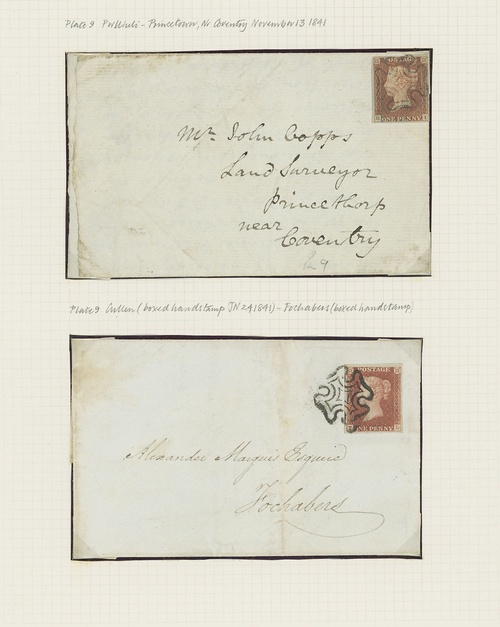 Plate 9 Pwllheli - Princetown, Nr Coventry November 13 1841
POSTAGE
ONE PENNY
Mr. John Copps
Land Surveyor
Princethorp
near
Coventry
Plate 9 Cullen (boxed handstamp JN 24 1841) - Fochabers (boxed handstamp)
POSTAGE
ONE PENNY
Alexander Marquis Esquire
Fochabers